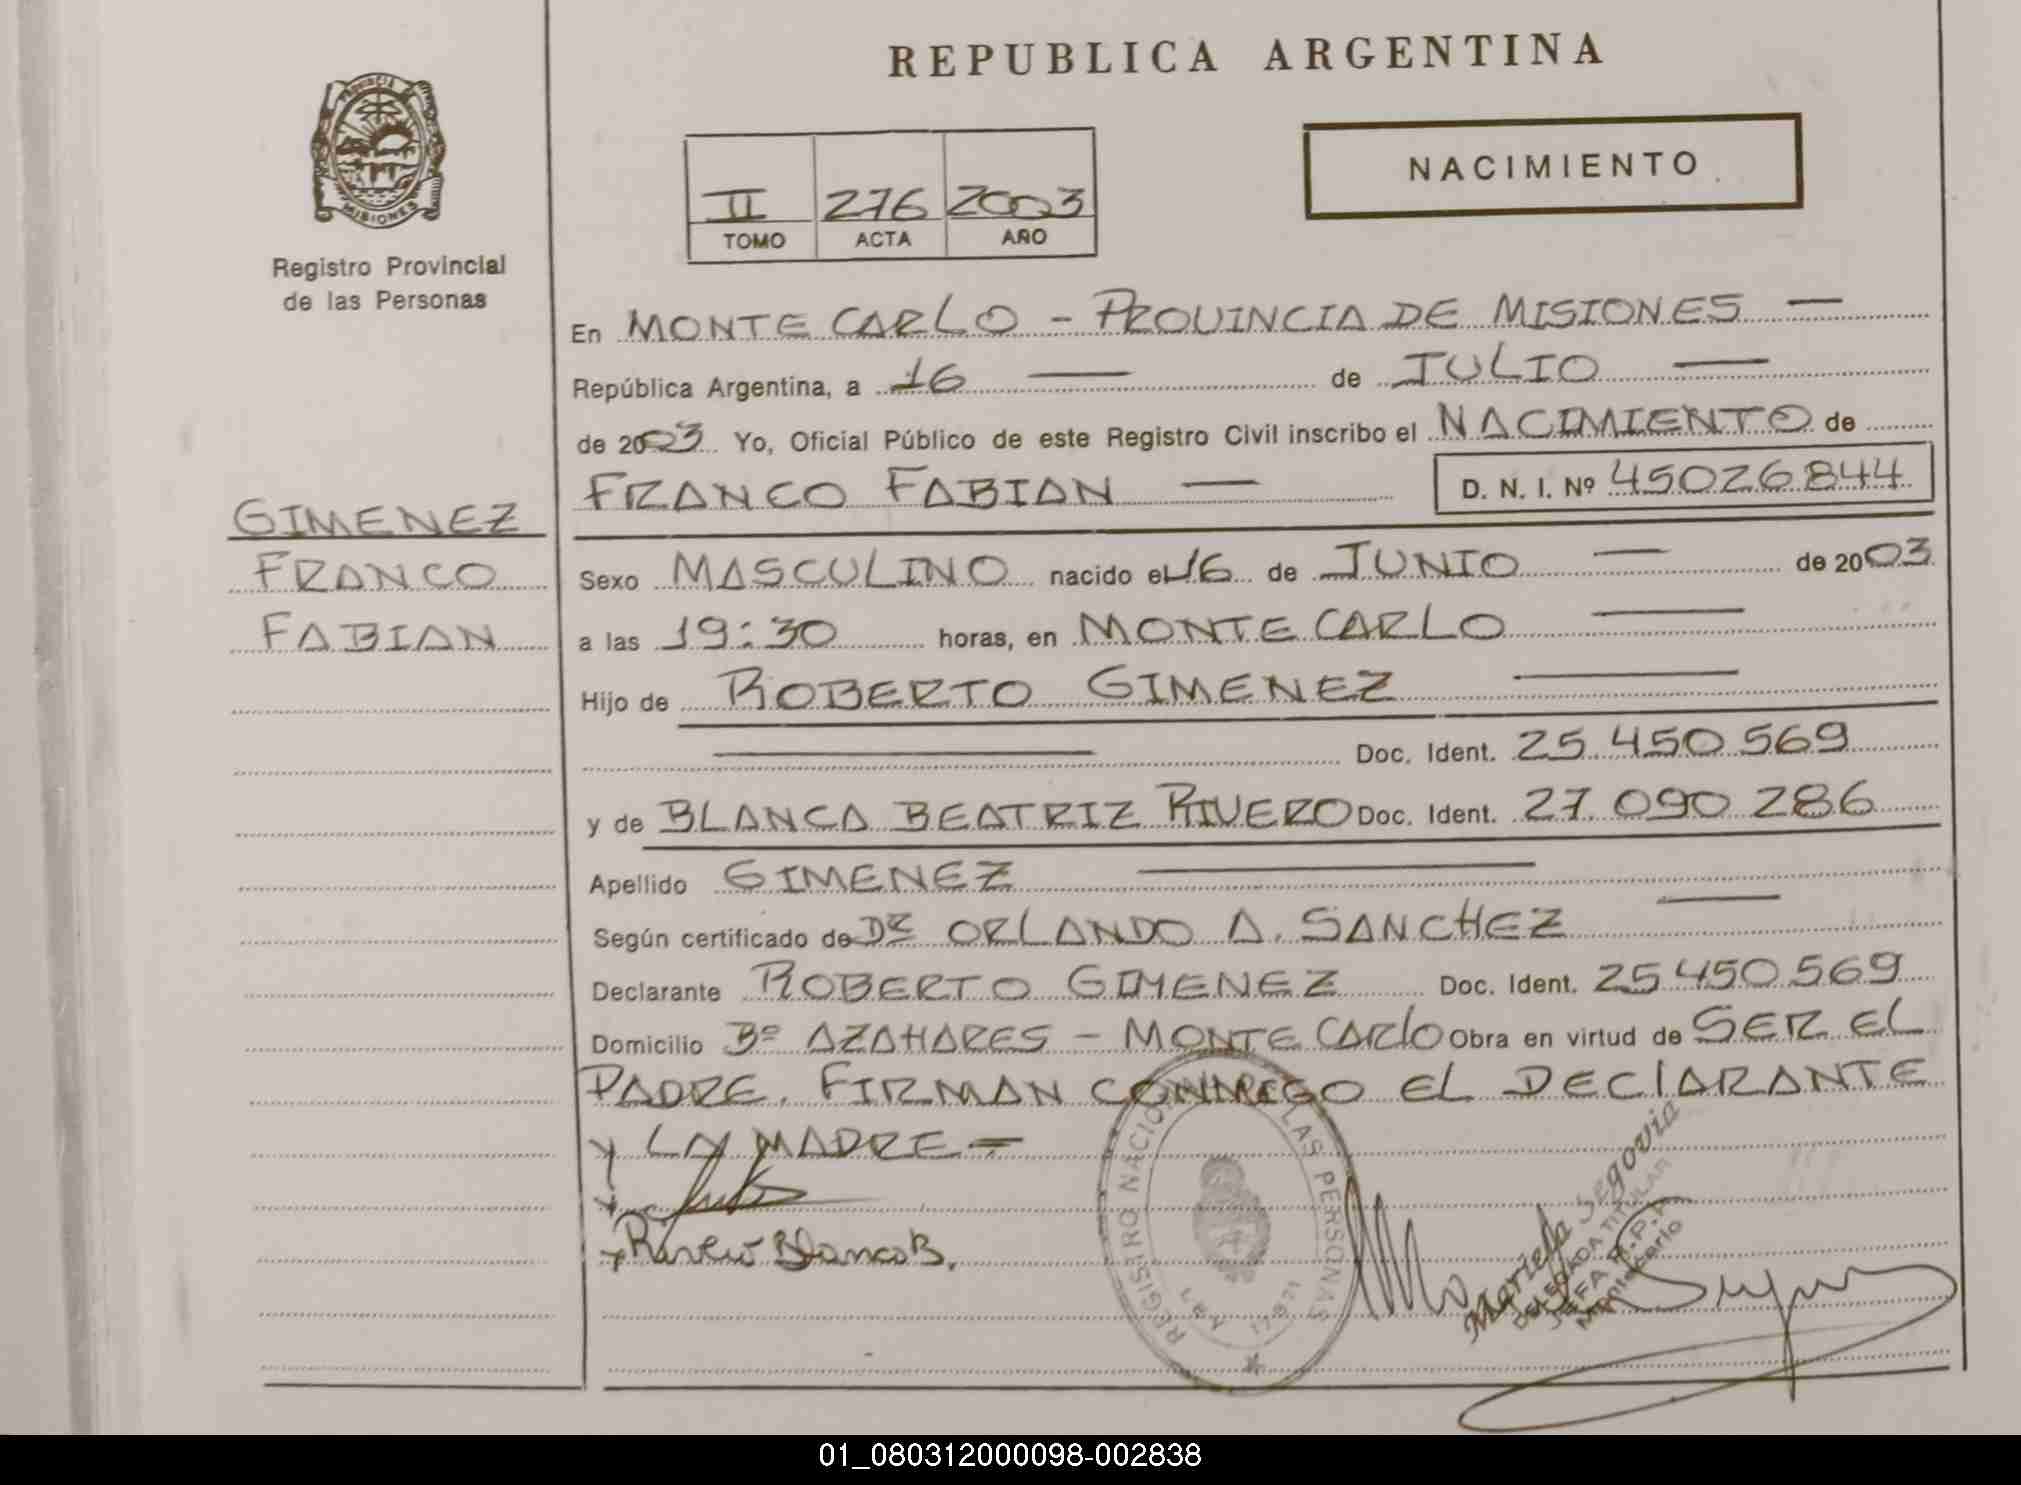 REPUBLICA ARGENTINA
PROVINCIA DE
MISIONES
Registro Provincial
de las Personas
II 276 2003
TOMO ACTA AÑO
NACIMIENTO
En MONTE CARLO - PROVINCIA DE MISIONES —
República Argentina, a 16 — de JULIO —
de 2003 Yo, Oficial Público de este Registro Civil inscribo el NACIMIENTO de
FRANCO FABIAN — D. N. I. Nº 45026844
GIMENEZ
FRANCO
FABIAN
Sexo MASCULINO nacido el 16 de JUNIO — de 2003
a las 19:30 horas, en MONTE CARLO —
Hijo de ROBERTO GIMENEZ —
— Doc. Ident. 25.450.569
y de BLANCA BEATRIZ RIVERO Doc. Ident. 27.090.286
Apellido GIMENEZ —
Según certificado de Dr ORLANDO A. SANCHEZ —
Declarante ROBERTO GIMENEZ Doc. Ident. 25.450.569
Domicilio Bº AZAHARES - MONTE CARLO Obra en virtud de SER EL
PADRE. FIRMAN CONMIGO EL DECLARANTE
Y LA MADRE =
Rivero Blanca B.
REGISTRO NACIONAL DE LAS PERSONAS
LEY 17.671
Mariela Segovia
DELEGADA TITULAR
JEFA R.P.P.
Montecarlo
01_080312000098-002838